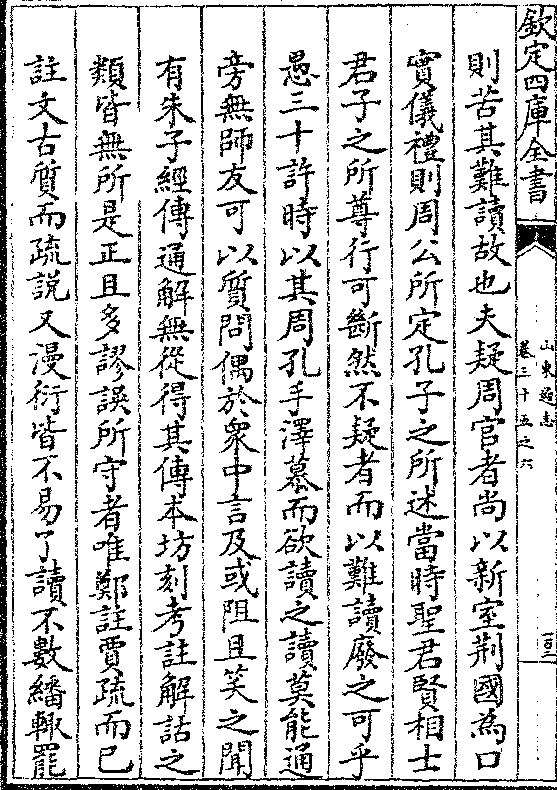 欽定四庫全書
山東通志
卷三十五之六
則苦其難讀故也夫疑周官者尚以新室荆國為口
實儀禮則周公所定孔子之所述當時聖君賢相士
君子之所尊行可斷然不疑者而以難讀廢之可乎
愚三十許時以其周孔手澤慕而欲讀之讀莫能通
旁無師友可以質問偶於衆中言及或阻且笑之聞
有朱子經傳通解無從得其傳本坊刻考註解詁之
類皆無所是正且多謬誤所守者唯鄭註賈疏而已
註文古質而疏說又漫衍皆不易了讀不數繙輙罷